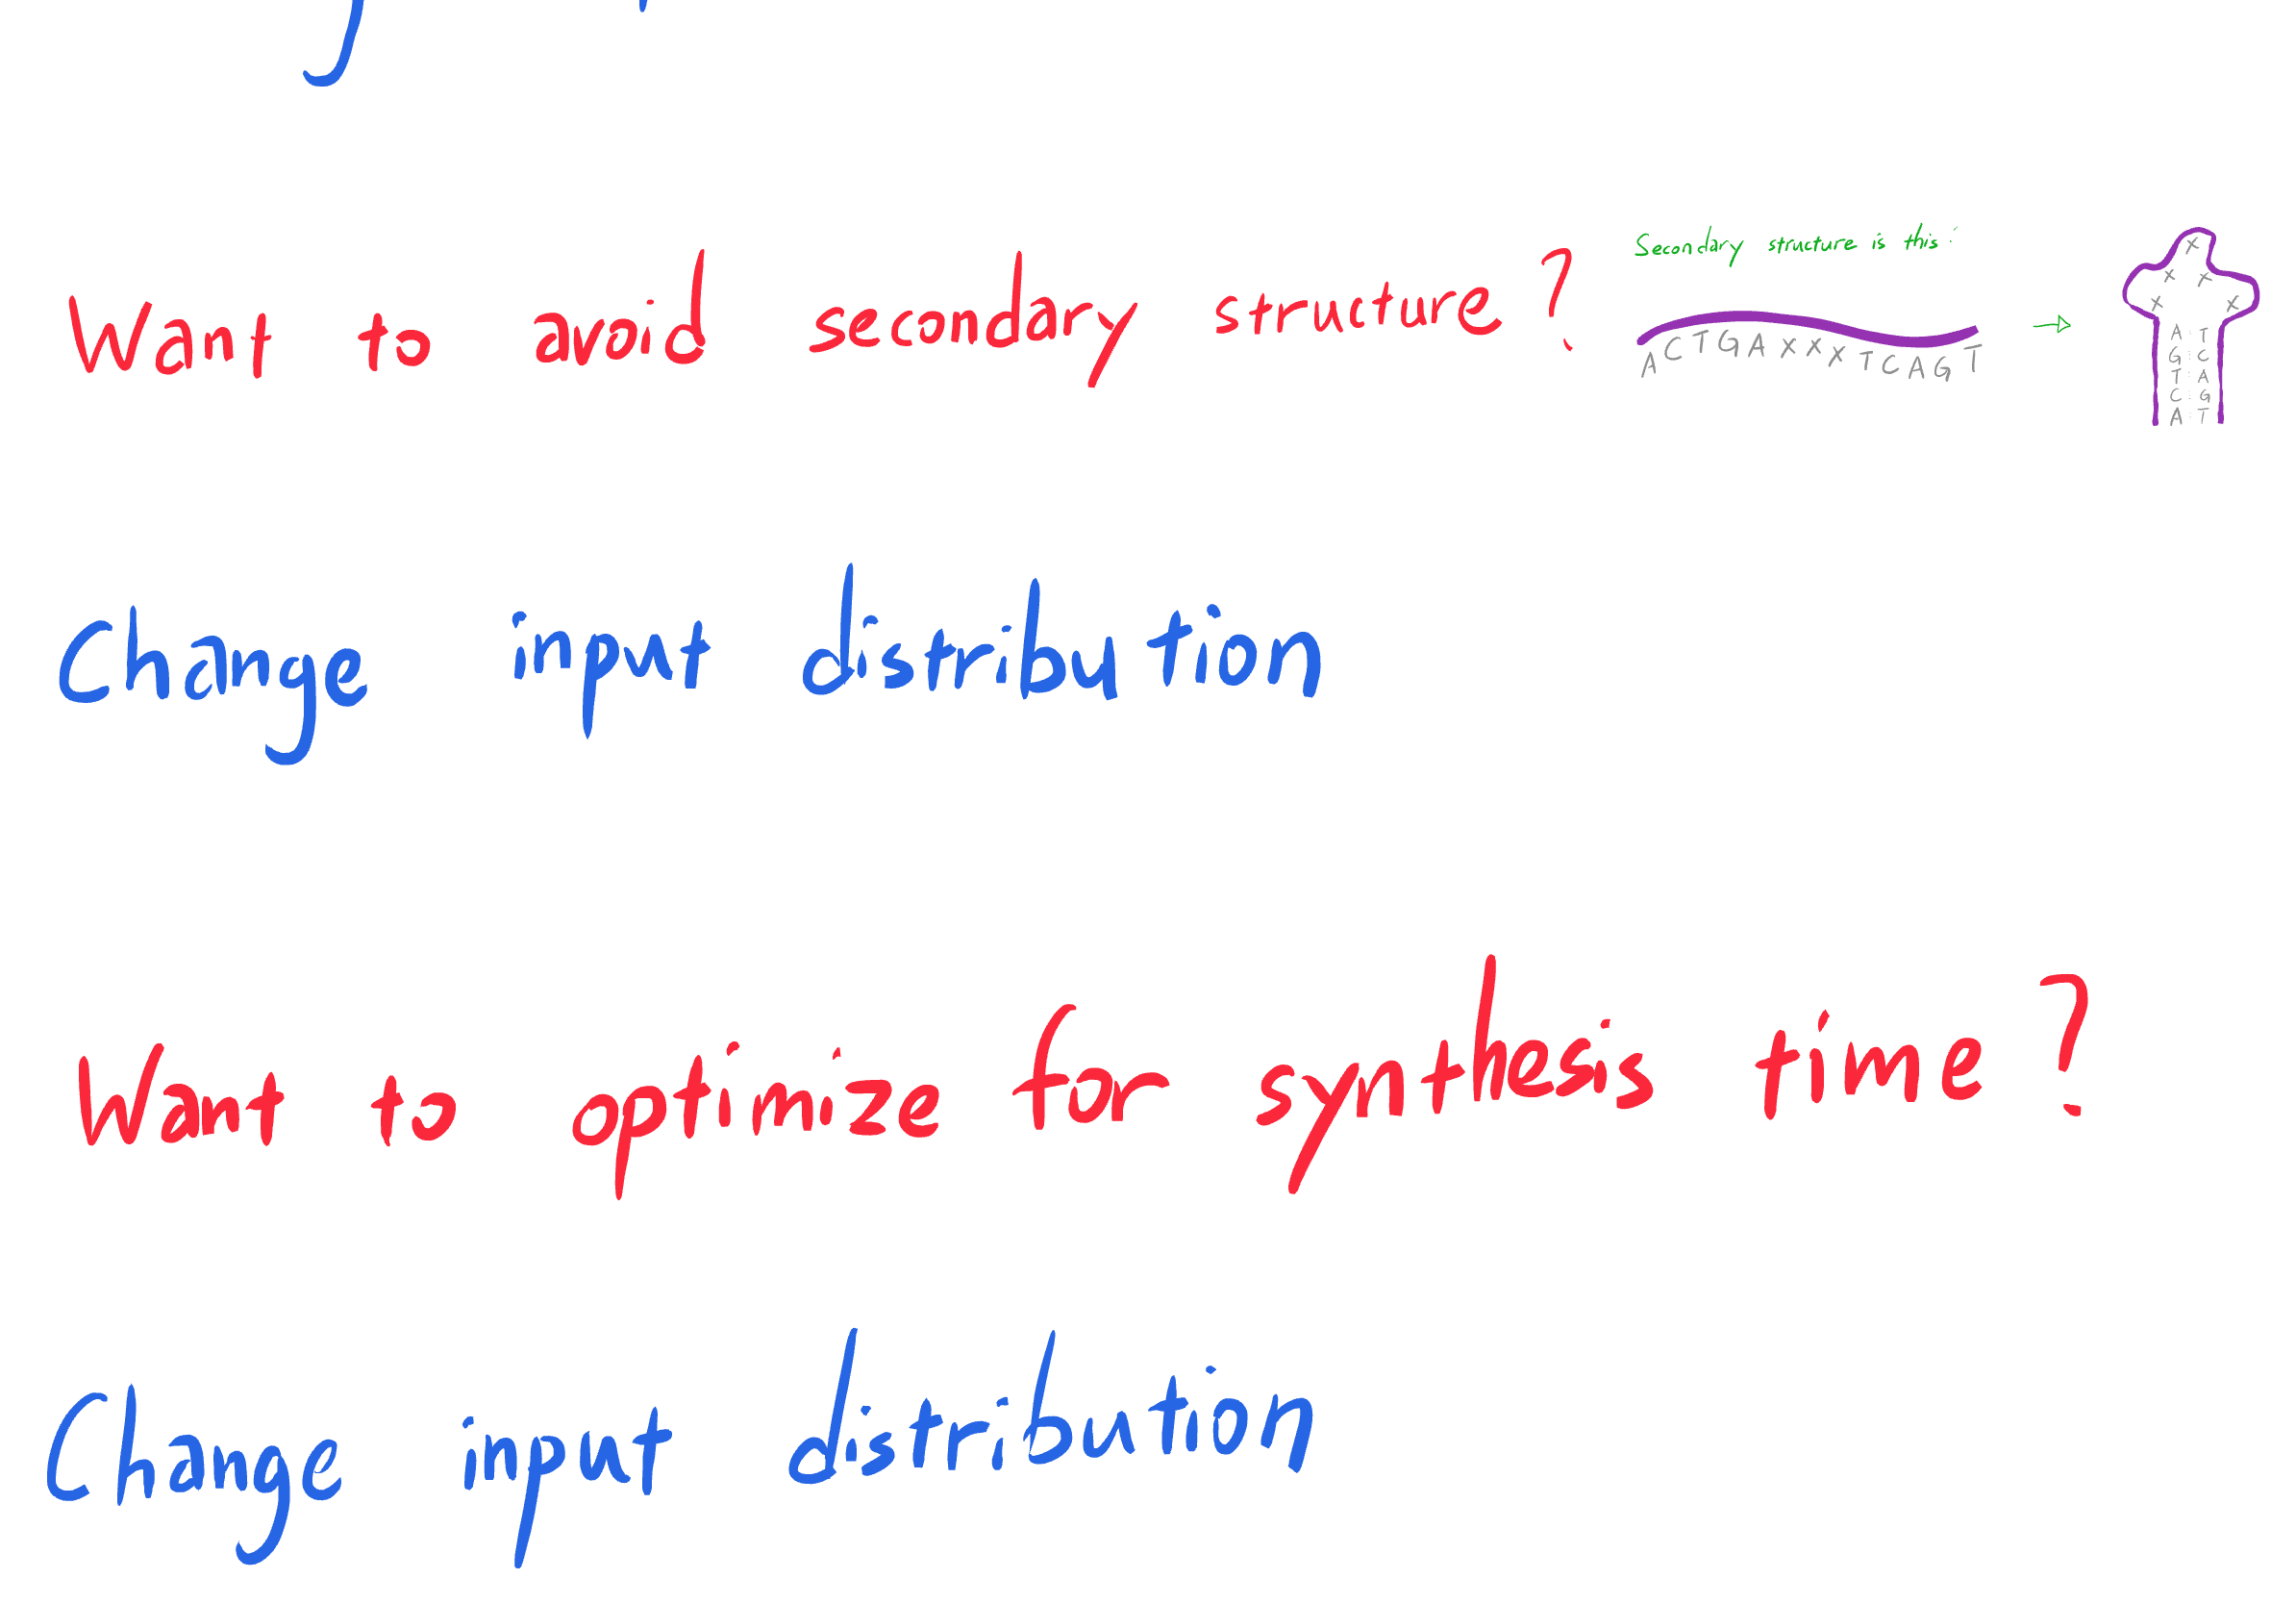 Want to avoid secondary structure?
Secondary structure is this:
ACTGAXXXTCAGT
X
X X
X X
A T
G C
T A
C G
A T
Change input distribution
Want to optimize for synthesis time?
Change input distribution